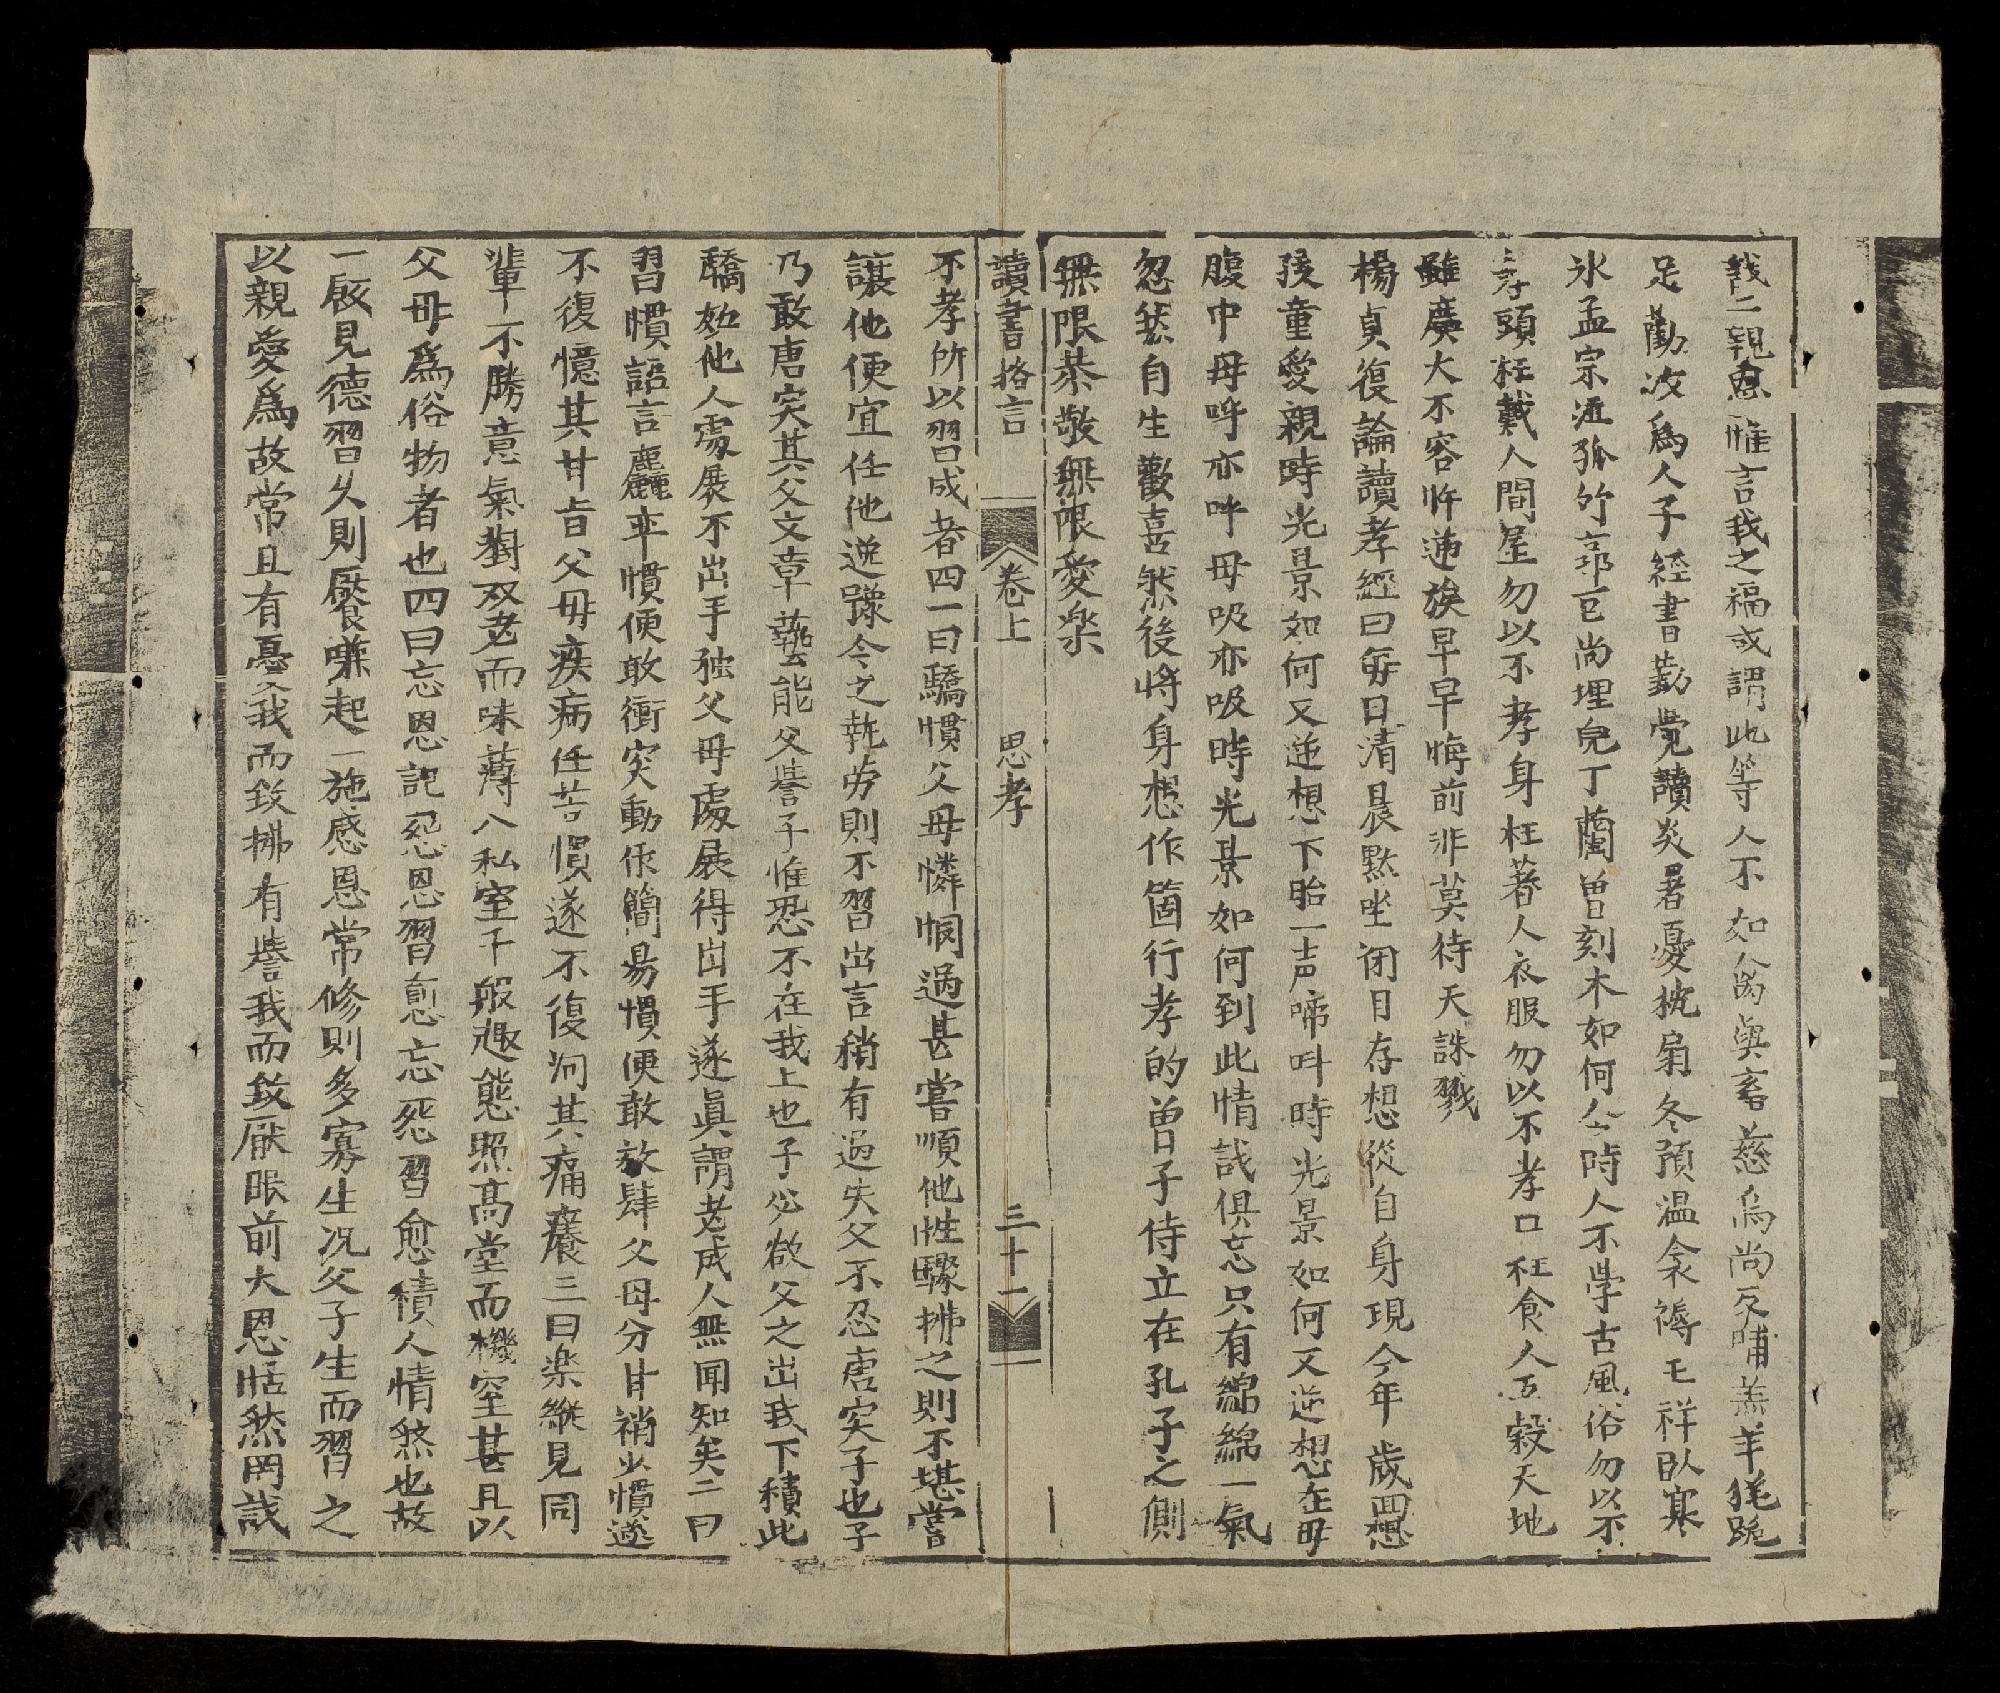 我二親恩惟言我之福或謂此等人不如禽與畜慈烏尚反哺羔羊猶跪
足勸汝爲人子經書勤覺讀炎暑憂枕扇冬預温衾褥王祥臥寒
氷孟宗泣孤竹郭巨尚埋兒丁蘭曾刻木如何今時人不學古風俗勿以不
孝頭枉戴人間屋勿以不孝身枉著人衣服勿以不孝口枉食人五穀天地
雖廣大不容忤逆族早早悔前非莫待天誅戮
楊貞復論讀孝經曰每日清晨默坐闭目存想從自身現今年歲囬想
孩童愛親時光景如何又逆想下胎一声啼呌時光景如何又逆想在母
腹中母呼亦呼母吸亦吸時光景如何到此情識俱忘只有綿綿一氣
忽然自生歡喜然後將身想作箇行孝的曽子侍立在孔子之側
無限恭敬無限愛楽
讀書格言 卷上 思孝 三十一
不孝所以習成者四一曰驕慣父母憐恫過甚嘗順他性驟拂之則不堪嘗
讓他便宜任他逸豫令之執劳則不習出言稍有過失父不忍唐突子也子
乃敢唐突其父文章藝能父譽子惟恐不在我上也子必欲父之出我下積此
驕妬他人處展不出手独父母處展得出手遂眞謂老成人無聞知矣二曰
習慣語言麤率慣便敢衝突動作簡易慣便敢放肆父母分甘稍少慣遂
不復憶其甘旨父母疾病任苦慣遂不復洞其痛癢三曰楽縱見同
輩不勝意氣對双老而味薄入私室千般趣態照高堂而機窒甚且以
父母爲俗物者也四曰忘恩記怨恩習愈忘怨習愈積人情然也故
一啟見德習久則厭嫌起一施感恩常修則多寡生况父子生而習之
以親愛爲故常且有憂我而致拂有譽我而致厭眼前大恩恬然罔識